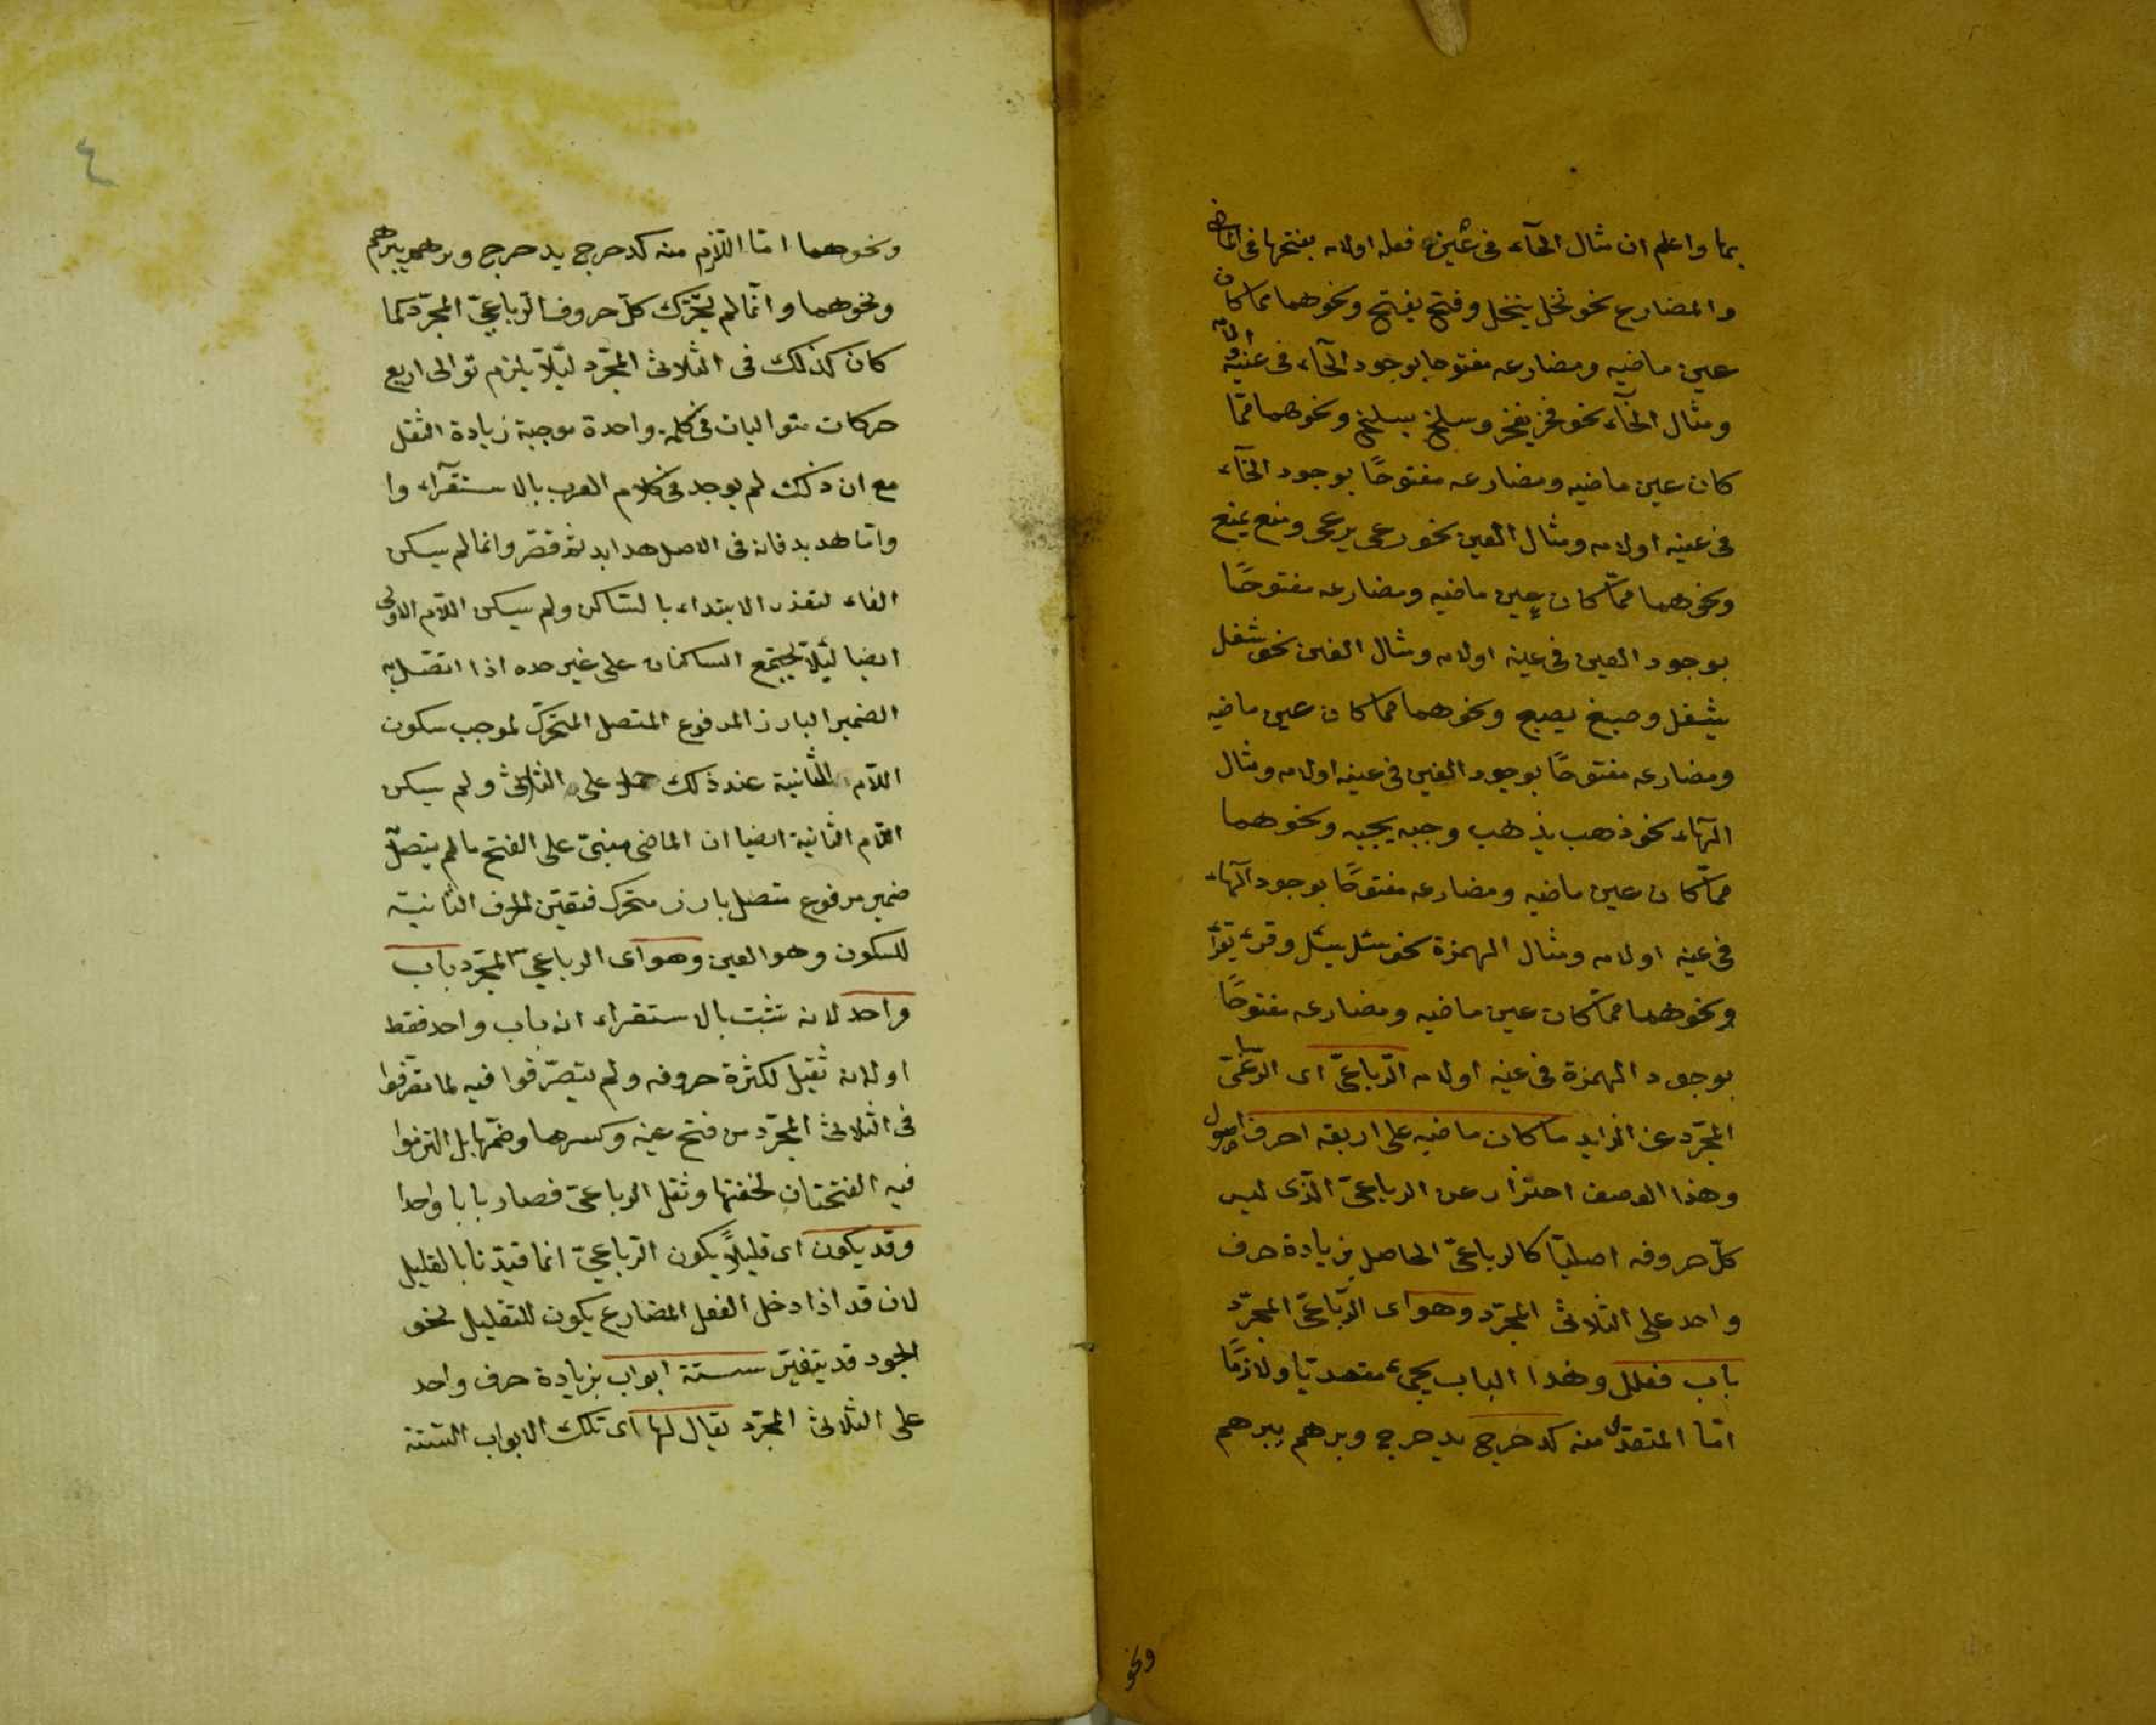 بها واعلم ان مثال الحآء فى عينه فعله اولامه بفتحها فى الماضى
والمضارع نحو نحل ينحل وفتح يفتح ونحوهما مما كان
عين ماضيه ومضارعه مفتوحا بوجود الحآء فى عينه او لامه
ومثال الخآء نحو فخر يفخر وسلخ يسلخ ونحوهما ممّا
كان عين ماضيه ومضارعه مفتوحًا بوجود الخآء
فى عينه اولامه ومثال العين نحو رعى يرعى ومنع يمنع
ونحوهما ممّا كان عين ماضيه ومضارعه مفتوحًا
بوجود العين فى عينه اولامه ومثال الغين نحو شغل
يشغل وصبغ يصبغ ونحوهما مما كان عين ماضيه
ومضارعه مفتوحًا بوجود الغين فى عينه اولامه ومثال
الهآء نحو ذهب يذهب وجبه يجبه ونحوهما
ممّا كان عين ماضيه ومضارعه مفتوحًا بوجود الهآء
فى عينه اولامه ومثال الهمزة نحو سئل يسئل وقرء يقرأ
ونحوهما ممّا كان عين ماضيه ومضارعه مفتوحًا
بوجود الهمزة فى عينه اولامه الرّباعىّ اى الرّباعىّ
المجرّد عن الزايد ما كان ماضيه على اربعة احرف اصول
وهذا الوصف احتراز عن الرباعىّ الّذى ليس
كلّ حروفه اصليّا كالرباعىّ الحاصل بزيادة حرف
واحد على الثلاثى المجرّد وهو اى الرّباعىّ المجرّد
باب فعلل وهذا الباب يجىء متعديّا ولازمًا
امّا المتعدّى منه كدحرج يدحرج وبرهم يبرهم
ونحو
٤
ونحوهما امّا اللّازم منه كدحرج يدحرج وبرهم يبرهم
ونحوهما وانّما لم يحّرك كلّ حروف الرّباعىّ المجرّد كما
كان كذلك فى الثلاثى المجرّد لئلّا يلزم توالى اربع
حركات متواليات فى كلمة واحدة موجبة زيادة الثقل
مع ان ذلك لم يوجد فى كلام العرب بالاستقرآء وا
وامّا هدبد فانه فى الاصل هدابد ثمّ قصّر وانما لم يسكن
الفاء لتعذر الابتداء بالسّاكن ولم يسكن اللّام الاولى
ايضا لئلّا يجتمع الساكنان على غير حده اذا اتّصل به
الضمير البارز المرفوع المتصل المتحرّك لموجب سكون
اللّام الثانية عند ذلك حملا على الثلاثى ولم يسكن
اللّام الثانية ايضا ان الماضى مبنىّ على الفتح ما لم يتصل
ضمير مرفوع متصل بارز متحرك فتعيّن الحرف الثانية
للسكون وهو العين وهو اى الرباعى المجرّد باب
واحد لانه تثبت بالاستقراء انه باب واحد فقط
او لانه ثقيل لكثرة حروفه ولم يتصرّفوا فيه لما تصرّفوا
فى الثلاثى المجرّد من فتح عينه وكسرها وضمّها بل التزموا
فيه الفتحتان لخفتها وثقل الرباعىّ فصار بابا واحدا
وقد يكون اى قليلاً يكون الرّباعىّ انما قيّدنا بالقليل
لان قد اذا دخل الفعل المضارع يكون للتقليل نحو
الجود قد يتغيّر ستة ابواب بزيادة حرف واحد
على الثلاثى المجرّد يقال لها اى تلك الابواب الستة